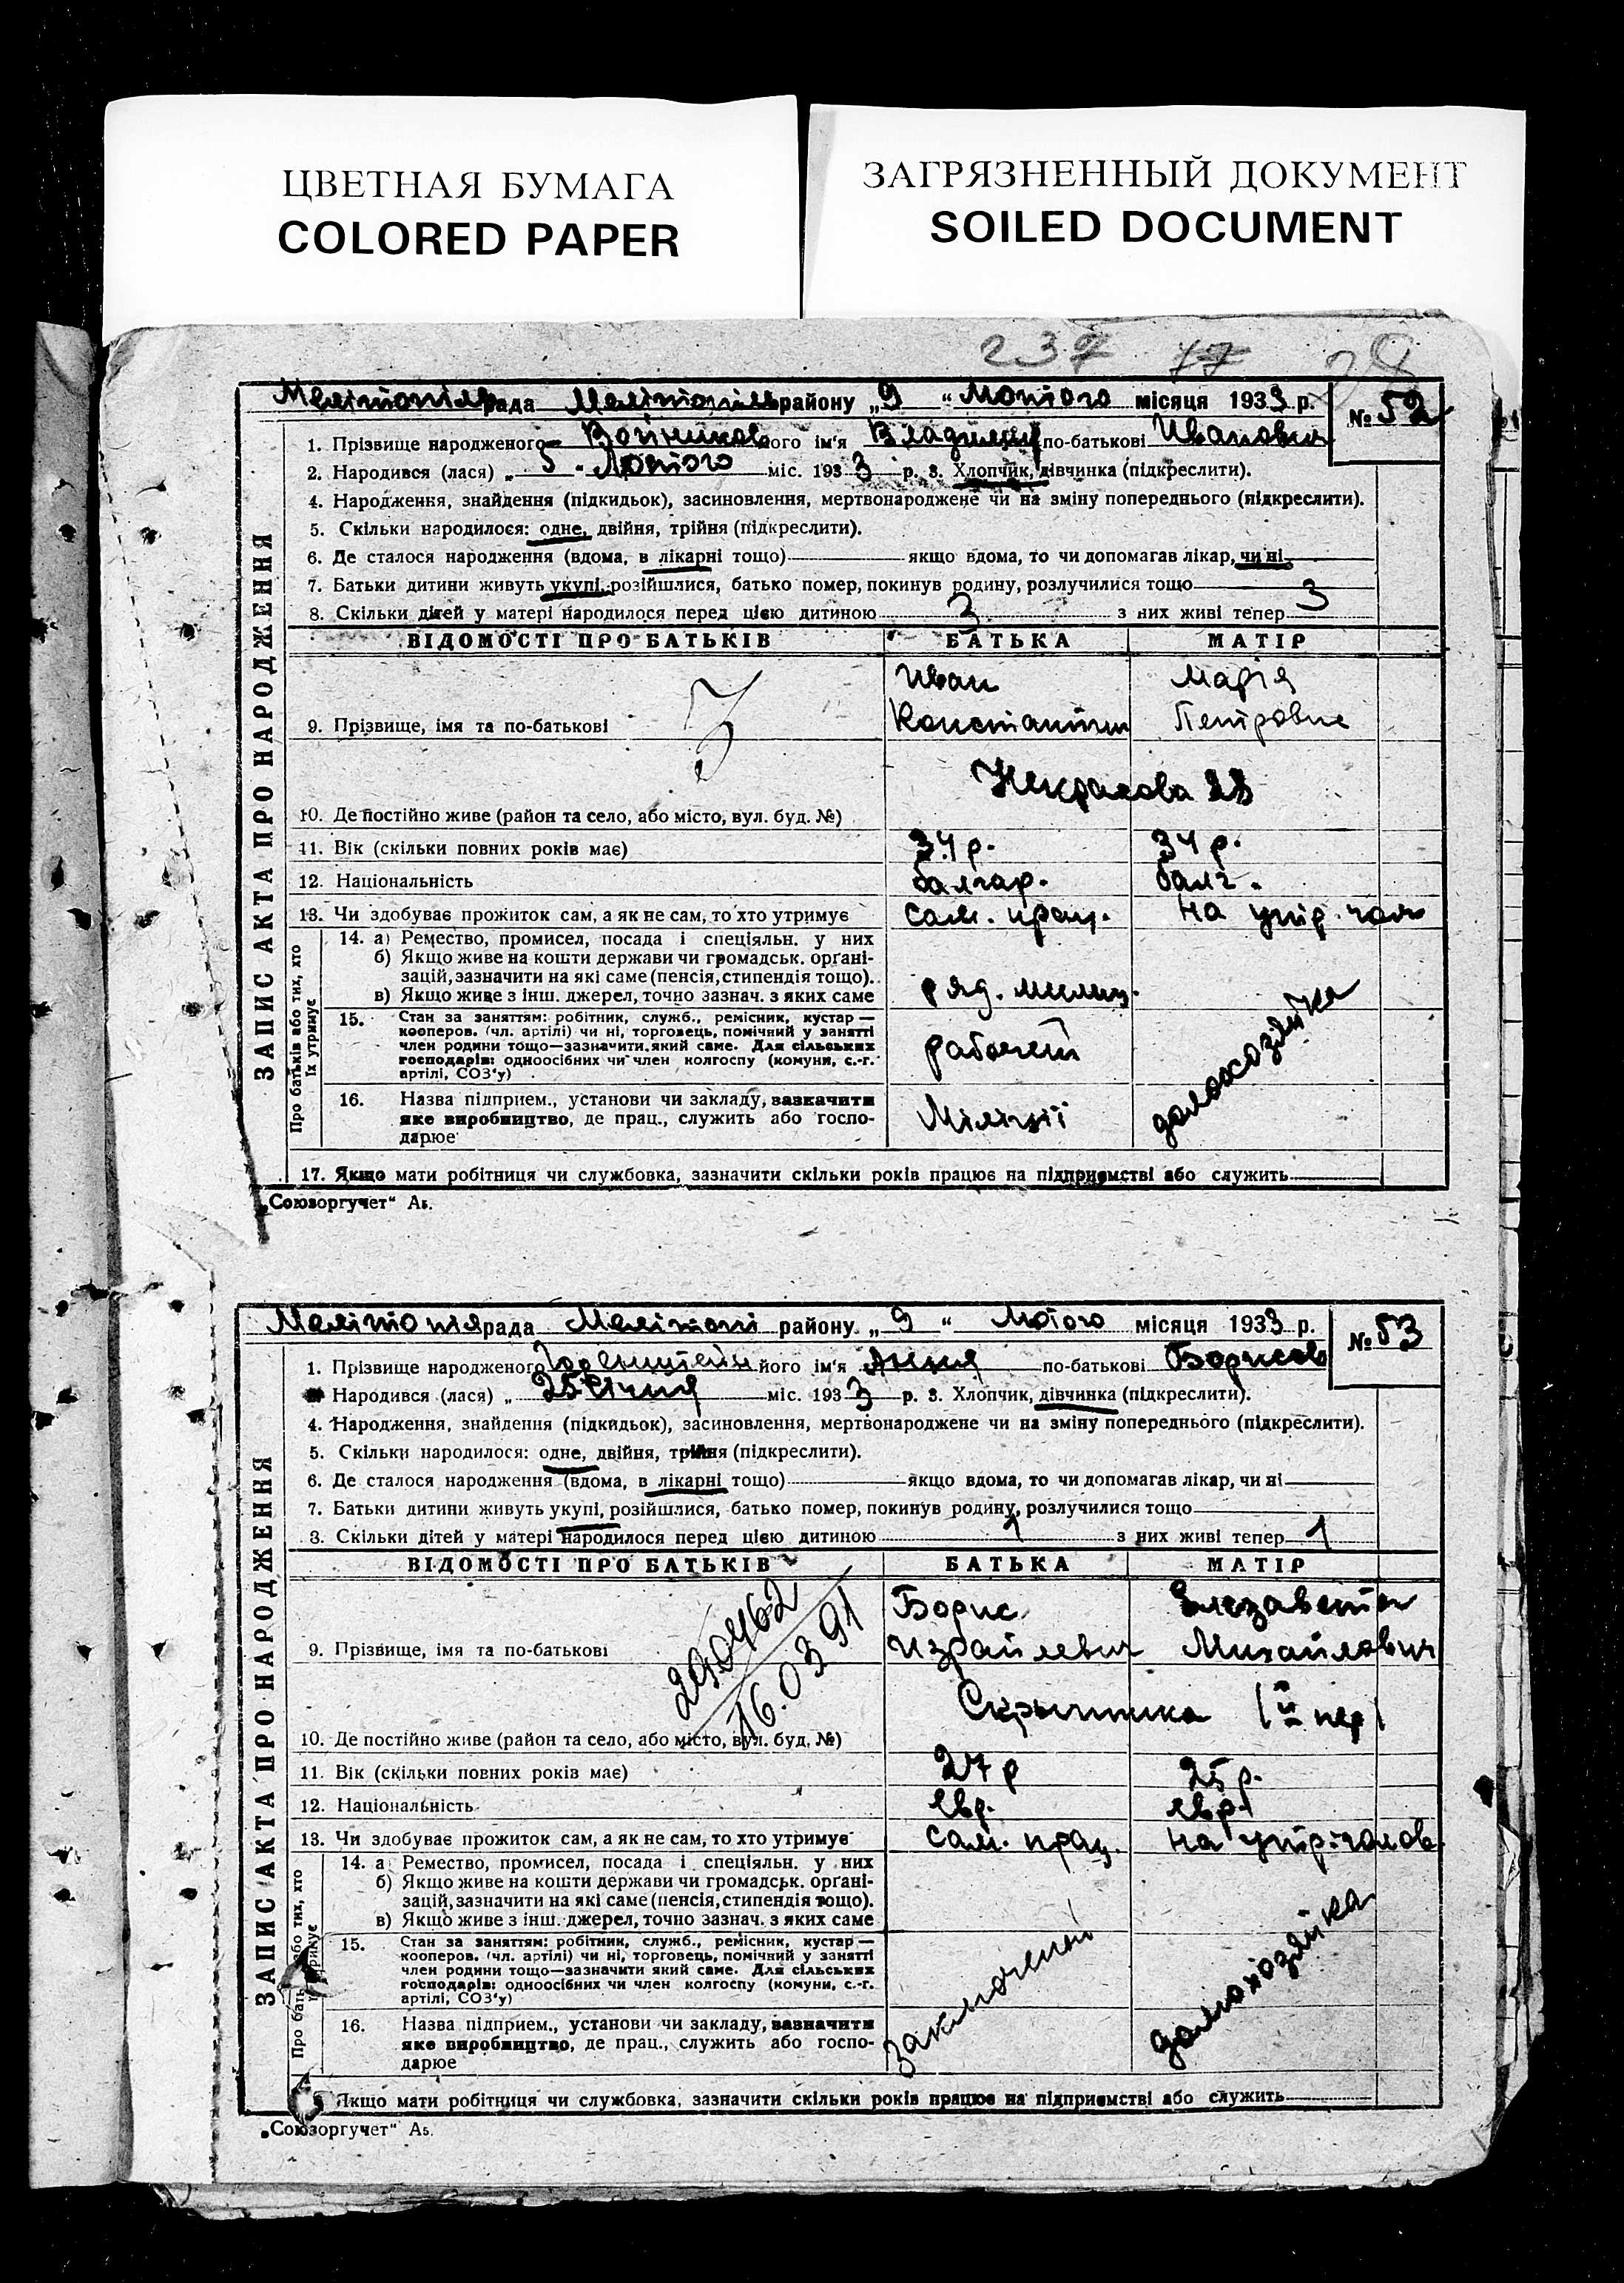 ЦВЕТНАЯ БУМАГА
COLORED PAPER
ЗАГРЯЗНЕННЫЙ ДОКУМЕНТ
SOILED DOCUMENT
237 77
рада районy „9 “ Лютого місяця 1933 р. № 52
1. Прізвище народженого Войников його ім'я Владимир по-батькові Иванович
2. Народився (лася) „ 5 " Лютого міс. 1933 р. 3. Хлопчик, дівчинка (підкреслити).
4. Народження, знайдення (підкидьок), засиновлення, мертвонароджене чи на зміну попереднього (підкреслити).
5. Скільки народилося: одне, двійня, трійня (підкреслити).
6. Де сталося народження (вдома, в лікарні тощо) якщо вдома, то чи допомагав лікар, чи ні
7. Батьки дитини живуть укупі, розійшлися, батько помер, покинув родину, розлучилися тощо
8. Скільки дітей у матері народилося перед цією дитиною 3 з них живі тепер 3
ЗАПИС АКТА ПРО НАРОДЖЕННЯ
ВІДОМОСТІ ПРО БАТЬКІВ БАТЬКА МАТІР
Иван Марія
9. Прізвище, імя та по-батькові Константин Петровне
Некрасова
10. Де постійно живе (район та село, або місто, вул. буд. №)
11. Вік (скільки повних років має) 34 р. 34 р.
12. Національність болгар. болг.
13. Чи здобуває прожиток сам, а як не сам, то хто утримує сам. прац. на утр. чол
Про батьків або тих, хто їх утримує
14. а) Ремество, промисел, посада і спеціяльн. у них
б) Якщо живе на кошти держави чи громадськ. органі-
зацій, зазначити на які саме (пенсія, стипендія тощо).
в) Якщо живе з інш. джерел, точно зазнач. з яких саме ряд. милиц.
15. Стан за заняттям: робітник, служб., ремісник, кустар —
кооперов. (чл. артілі) чи ні, торговець, помічний у занятті
член родини тощо—зазначити який саме. Для сільських
господарів: одноосібних чи член колгоспу (комуни, с.-г.
артілі, СОЗ'у) рабочий
домохозяйка
16. Назва підприєм., установи чи закладу, зазначити
яке виробництво, де прац., служить або госпо-
дарює Міліції
17. Якщо мати робітниця чи службовка, зазначити скільки років працює на підприємстві або служить
„Союзоргучет“ Аз.
рада районy „ 9 “ Лютого місяця 1933 р. № 53
1. Прізвище народженого його ім'я Анна по-батькові Борисов
Народився (лася) „ 25 Січня міс. 1933 р. 3. Хлопчик, дівчинка (підкреслити).
4. Народження, знайдення (підкидьок), засиновлення, мертвонароджене чи на зміну попереднього (підкреслити).
5. Скільки народилося: одне, двійня, трійня (підкреслити).
6. Де сталося народження (вдома, в лікарні тощо) якщо вдома, то чи допомагав лікар, чи ні
7. Батьки дитини живуть укупі, розійшлися, батько помер, покинув родину, розлучилися тощо
8. Скільки дітей у матері народилося перед цією дитиною 1 з них живі тепер 1
ЗАПИС АКТА ПРО НАРОДЖЕННЯ
ВІДОМОСТІ ПРО БАТЬКІВ БАТЬКА МАТІР
290462
16.03 91
Борис Елезавета
9. Прізвище, імя та по-батькові Израйлевич Михайлович
Скрыпника (II пер)
10. Де постійно живе (район та село, або місто, вул. буд. №)
11. Вік (скільки повних років має) 27 р 25 р.
12. Національність евр. евр.
13. Чи здобуває прожиток сам, а як не сам, то хто утримує сам. прац. на утр. чолов.
14. а) Ремество, промисел, посада і спеціяльн. у них
б) Якщо живе на кошти держави чи громадськ. органі-
зацій, зазначити на які саме (пенсія, стипендія тощо).
в) Якщо живе з інш. джерел, точно зазнач. з яких саме
15. Стан за заняттям: робітник, служб., ремісник, кустар —
кооперов. (чл. артілі) чи ні, торговець, помічний у занятті
член родини тощо—зазначити який саме. Для сільських
господарів: одноосібних чи член колгоспу (комуни, с.-г.
артілі, СОЗ'у)
домохозяйка
16. Назва підприєм., установи чи закладу, зазначити
яке виробництво, де прац., служить або госпо-
дарює
Якщо мати робітниця чи службовка, зазначити скільки років працює на підприємстві або служить
„Союзоргучет“ Аз.